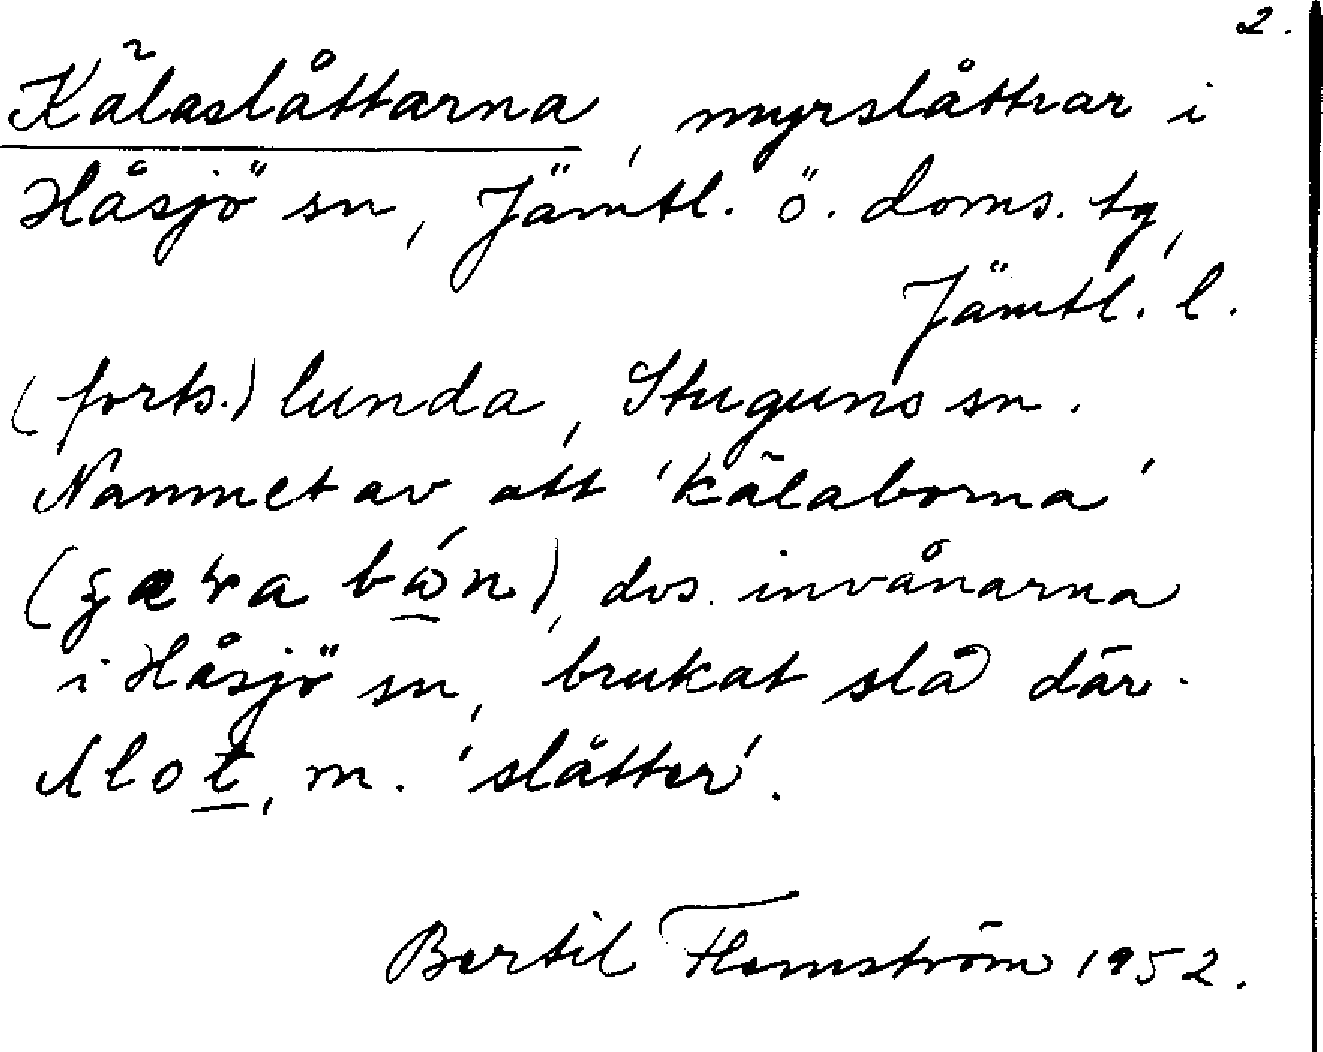 2.
Kälaslåttarna, myrslåttrar i
Håsjö sn, Jämtl. ö. doms. tg,
Jämtl. l.
(forts.) lunda, Stuguns sn.
Namnet av att 'kälaborna'
dvs. invånarna
i Håsjö sn, brukat slå där.
m. 'slåtter'.
Bertil Flemström 1952.